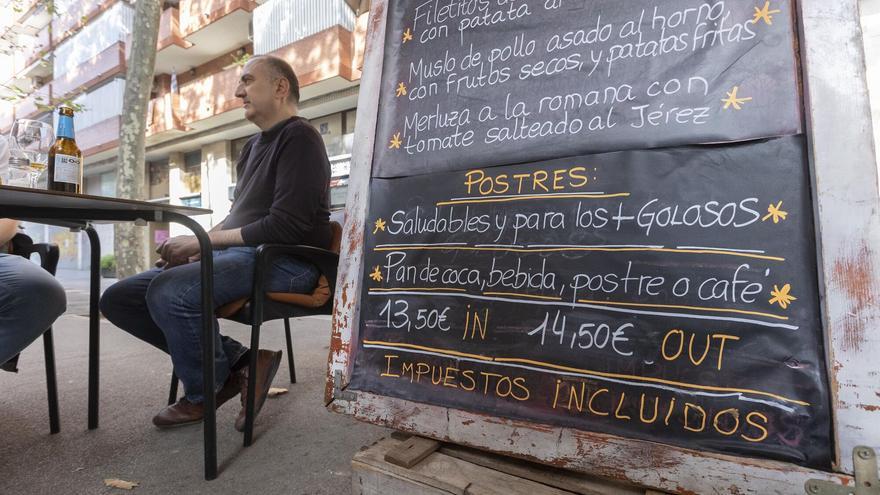 Filetitos de
con patata al
Muslo de pollo asado al horno
con frutos secos y patatas fritas
Merluza a la romana con
tomate salteado al Jérez
POSTRES:
Saludables y para los + GOLOSOS
Pan de coca, bebida, postre o café
13,50€ iN 14,50€ OUT
IMPUESTOS INCLUIDOS